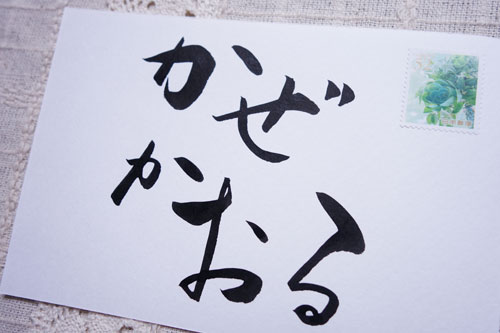 かぜ
かおる